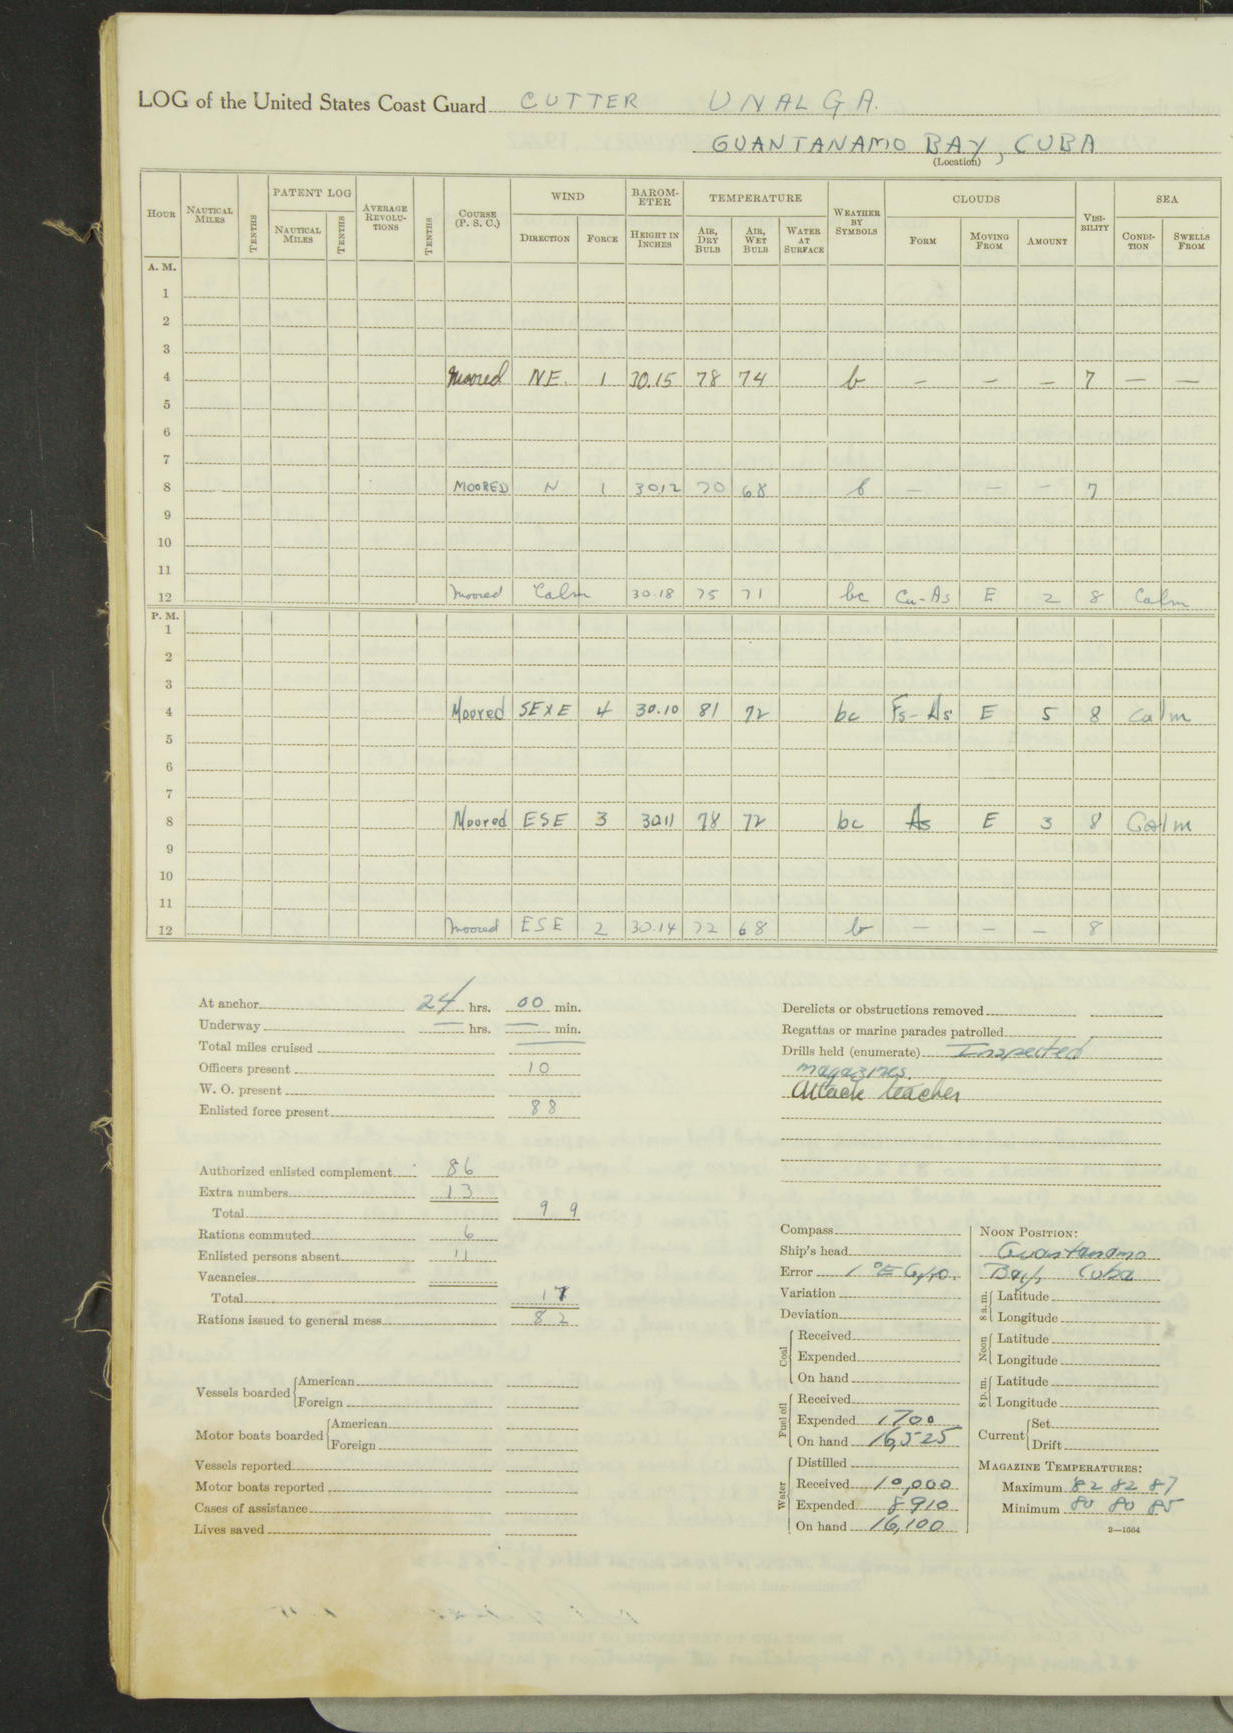 LOG of the United States Coast Guard CUTTER UNALGA.
GUANTANAMO BAY, CUBA
(Location)
HOUR NAUTICAL MILES TENTHS PATENT LOG NAUTICAL MILES TENTHS AVERAGE REVOLUTIONS TENTHS COURSE (P. S. C.) WIND DIRECTION FORCE BAROMETER HEIGHT IN INCHES TEMPERATURE AIR, DRY BULB AIR, WET BULB WATER AT SURFACE WEATHER BY SYMBOLS CLOUDS FORM MOVING FROM AMOUNT VISIBILITY SEA CONDITION SWELLS FROM
A. M.
1
2
3
4 Moored NE. 1 30.15 78 74 b — — — 7 — —
5
6
7
8 MOORED N 1 3012 70 68 b — — — 7
9
10
11
12 Moored Calm 30.18 75 71 bc Cu-As E 2 8 Calm
P. M.
1
2
3
4 Moored SEXE 4 30.10 81 72 bc Fs-As E 5 8 Calm
5
6
7
8 Moored ESE 3 3011 78 72 bc As E 3 8 Calm
9
10
11
12 Moored ESE 2 30.14 72 68 b — — — 8
At anchor 24 hrs. 00 min.
Underway — hrs. — min.
Total miles cruised
Officers present 10
W. O. present
Enlisted force present 88
Authorized enlisted complement 86
Extra numbers 13
Total 99
Rations commuted 6
Enlisted persons absent 11
Vacancies
Total 17
Rations issued to general mess 82
Vessels boarded American
Foreign
Motor boats boarded American
Foreign
Vessels reported
Motor boats reported
Cases of assistance
Lives saved
Derelicts or obstructions removed
Regattas or marine parades patrolled
Drills held (enumerate) Inspected
magazines.
Attack teacher
Compass
Ship's head
Error 1°E Gyro.
Variation
Deviation
Coal Received
Expended
On hand
Fuel oil Received
Expended 1700
On hand 16,525
Water Distilled
Received 10,000
Expended 8910
On hand 16,100
NOON POSITION:
Guantanamo
Bay, Cuba
8 a.m. Latitude
Longitude
Noon Latitude
Longitude
8 p.m. Latitude
Longitude
Current Set
Drift
MAGAZINE TEMPERATURES:
Maximum 82 82 87
Minimum 80 80 85
2—1664